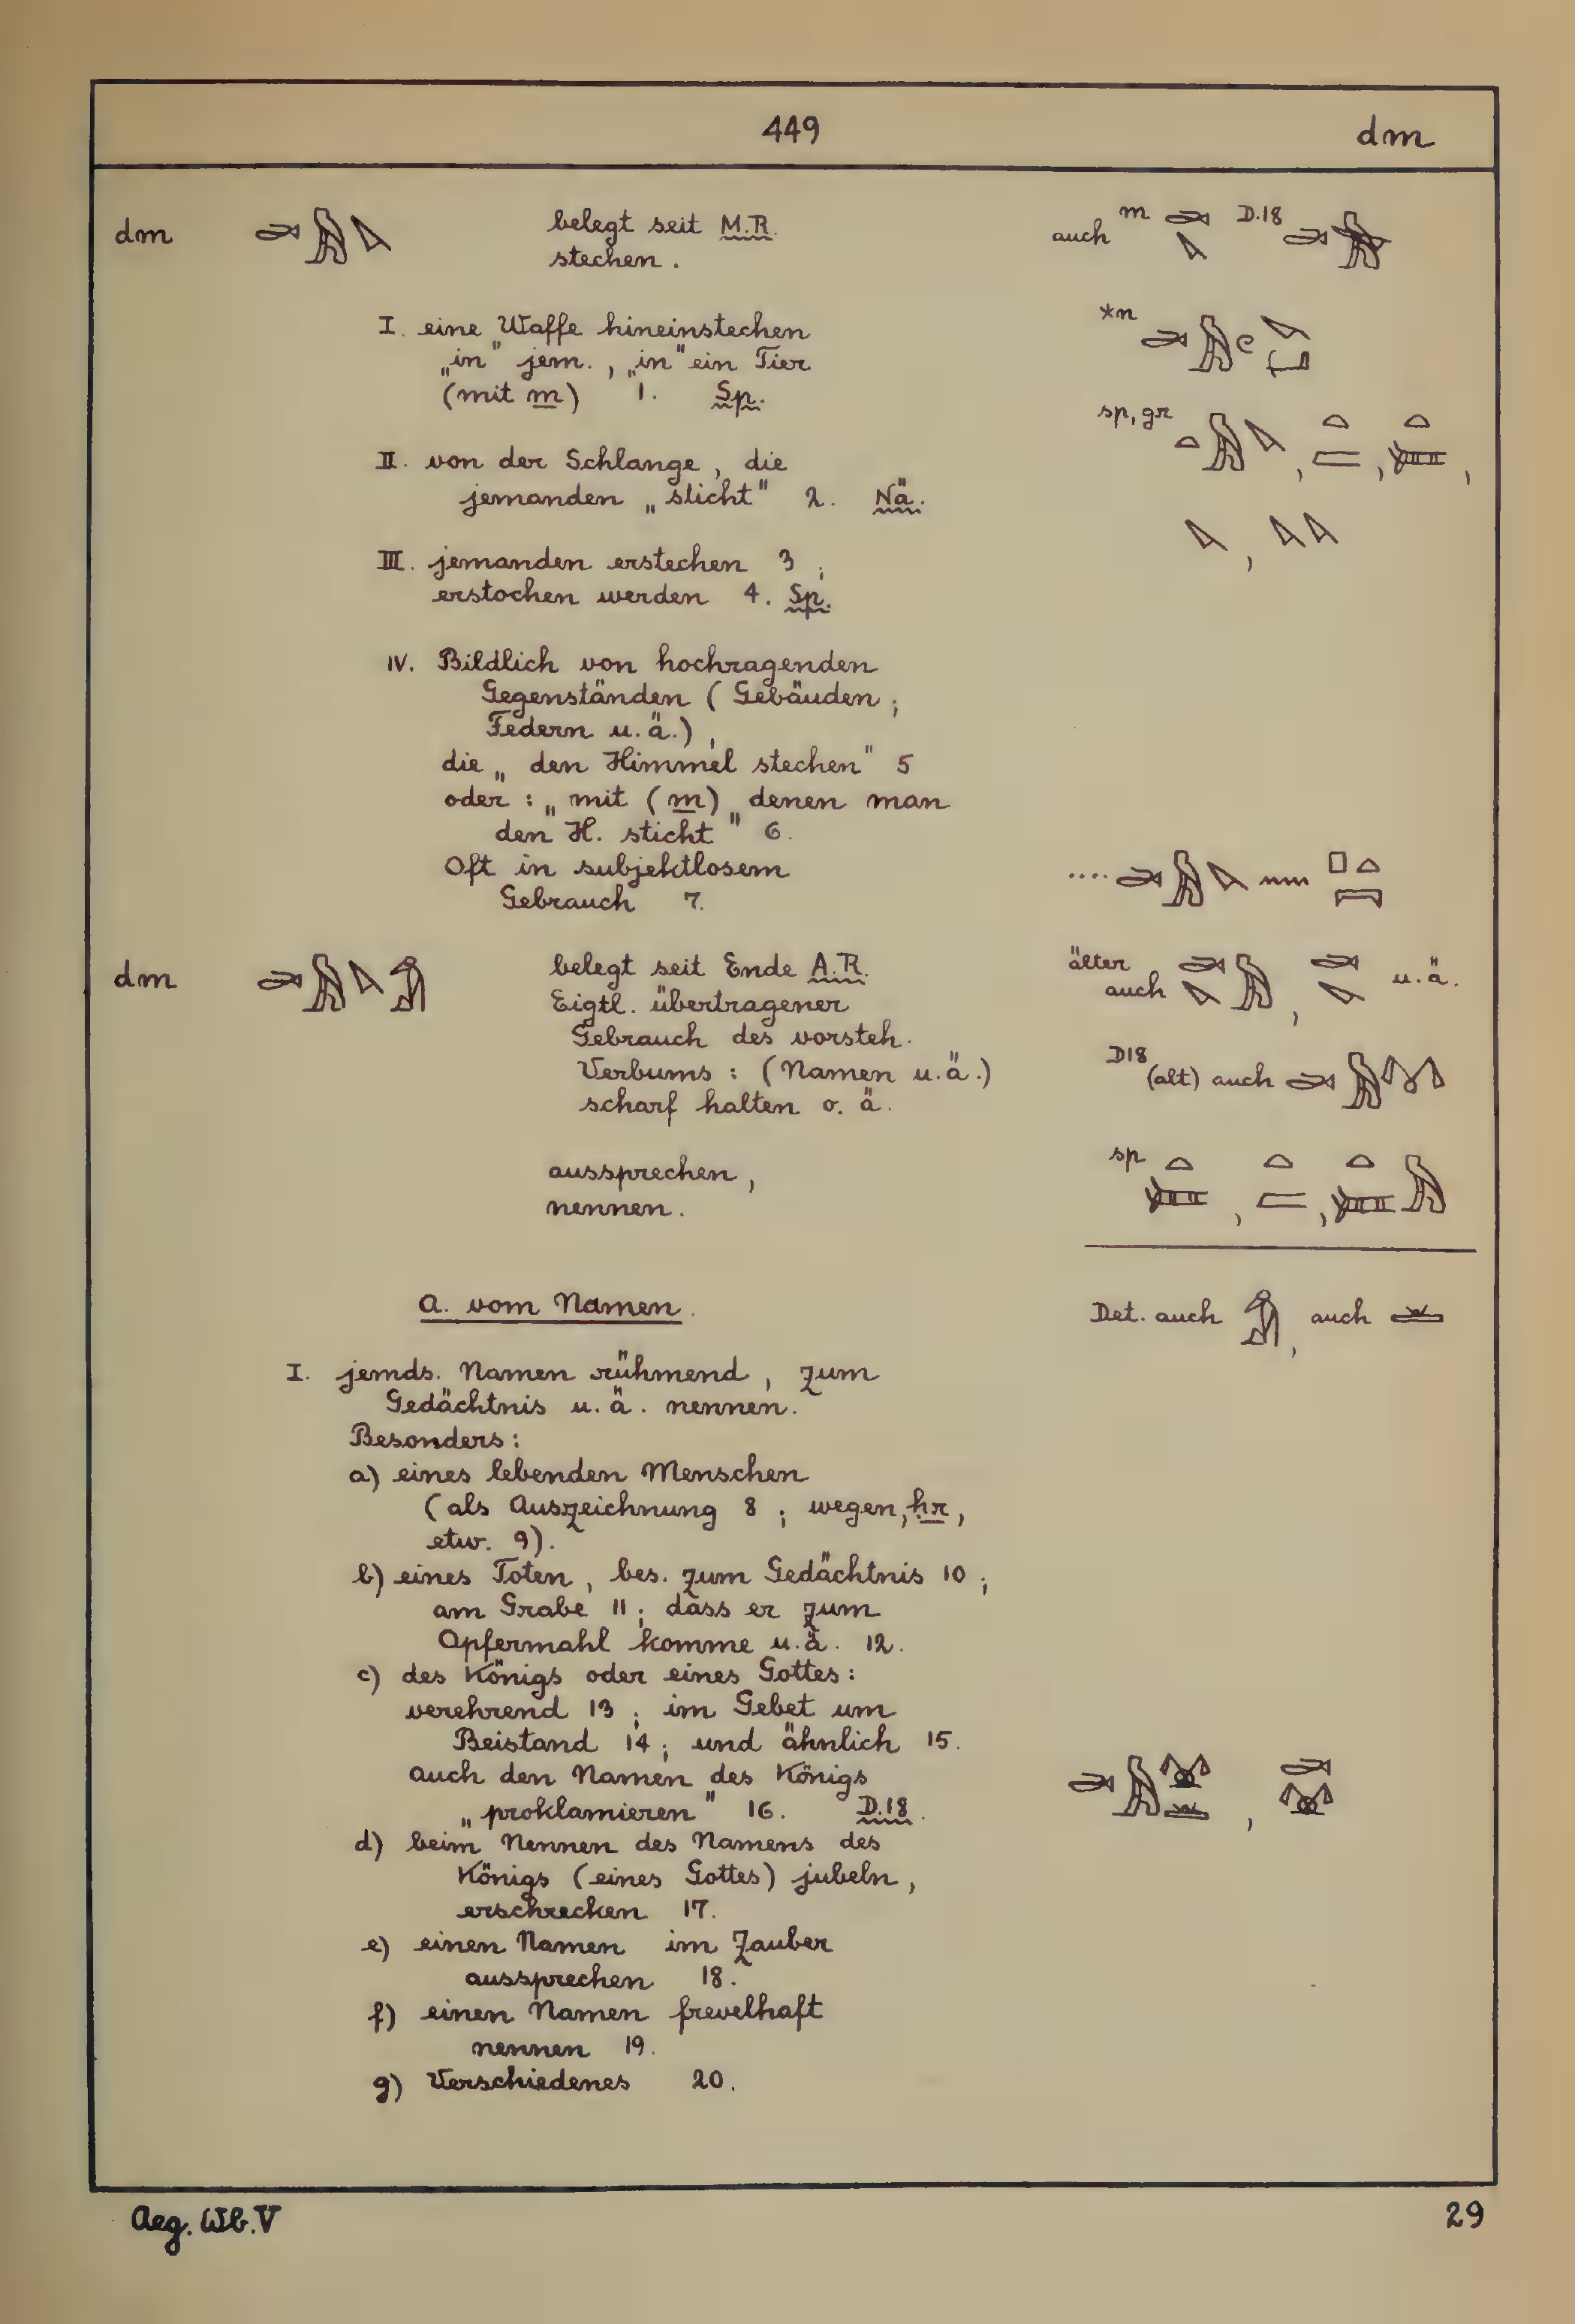 449 dm
dm belegt seit M.R.
stechen.
auch m D.18
I. eine Waffe hineinstechen
„in" jem., „in" ein Tier
(mit m) 1. Sp.
*n
sp, gr
II. von der Schlange, die
jemanden „sticht" 2. Nä.
III. jemanden erstechen 3;
erstochen werden 4. Sp.
IV. Bildlich von hochragenden
Gegenständen (Gebäuden;
Federn u.ä.),
die „den Himmel stechen" 5
oder: „mit (m) denen man
den H. sticht" 6.
Oft in subjektlosem
Gebrauch 7.
....
dm belegt seit Ende A.R.
Eigtl. übertragener
Gebrauch des vorsteh.
Verbums: (Namen u.ä.)
scharf halten o.ä.
aussprechen,
nennen.
älter
auch , u.ä.
D18
(alt) auch
sp
Det. auch , auch
a. vom Namen.
I. jemds. Namen rühmend, zum
Gedächtnis u.ä. nennen.
Besonders:
a) eines lebenden Menschen
(als Auszeichnung 8; wegen, ḥr,
etw. 9).
b) eines Toten, bes. zum Gedächtnis 10;
am Grabe 11; dass er zum
Opfermahl komme u.ä. 12.
c) des Königs oder eines Gottes:
verehrend 13; im Gebet um
Beistand 14; und ähnlich 15.
auch den Namen des Königs
„proklamieren" 16. D.18.
d) beim Nennen des Namens des
Königs (eines Gottes) jubeln,
erschrecken 17.
e) einen Namen im Zauber
aussprechen 18.
f) einen Namen frevelhaft
nennen 19.
g) Verschiedenes 20.
Aeg. Wb. V 29